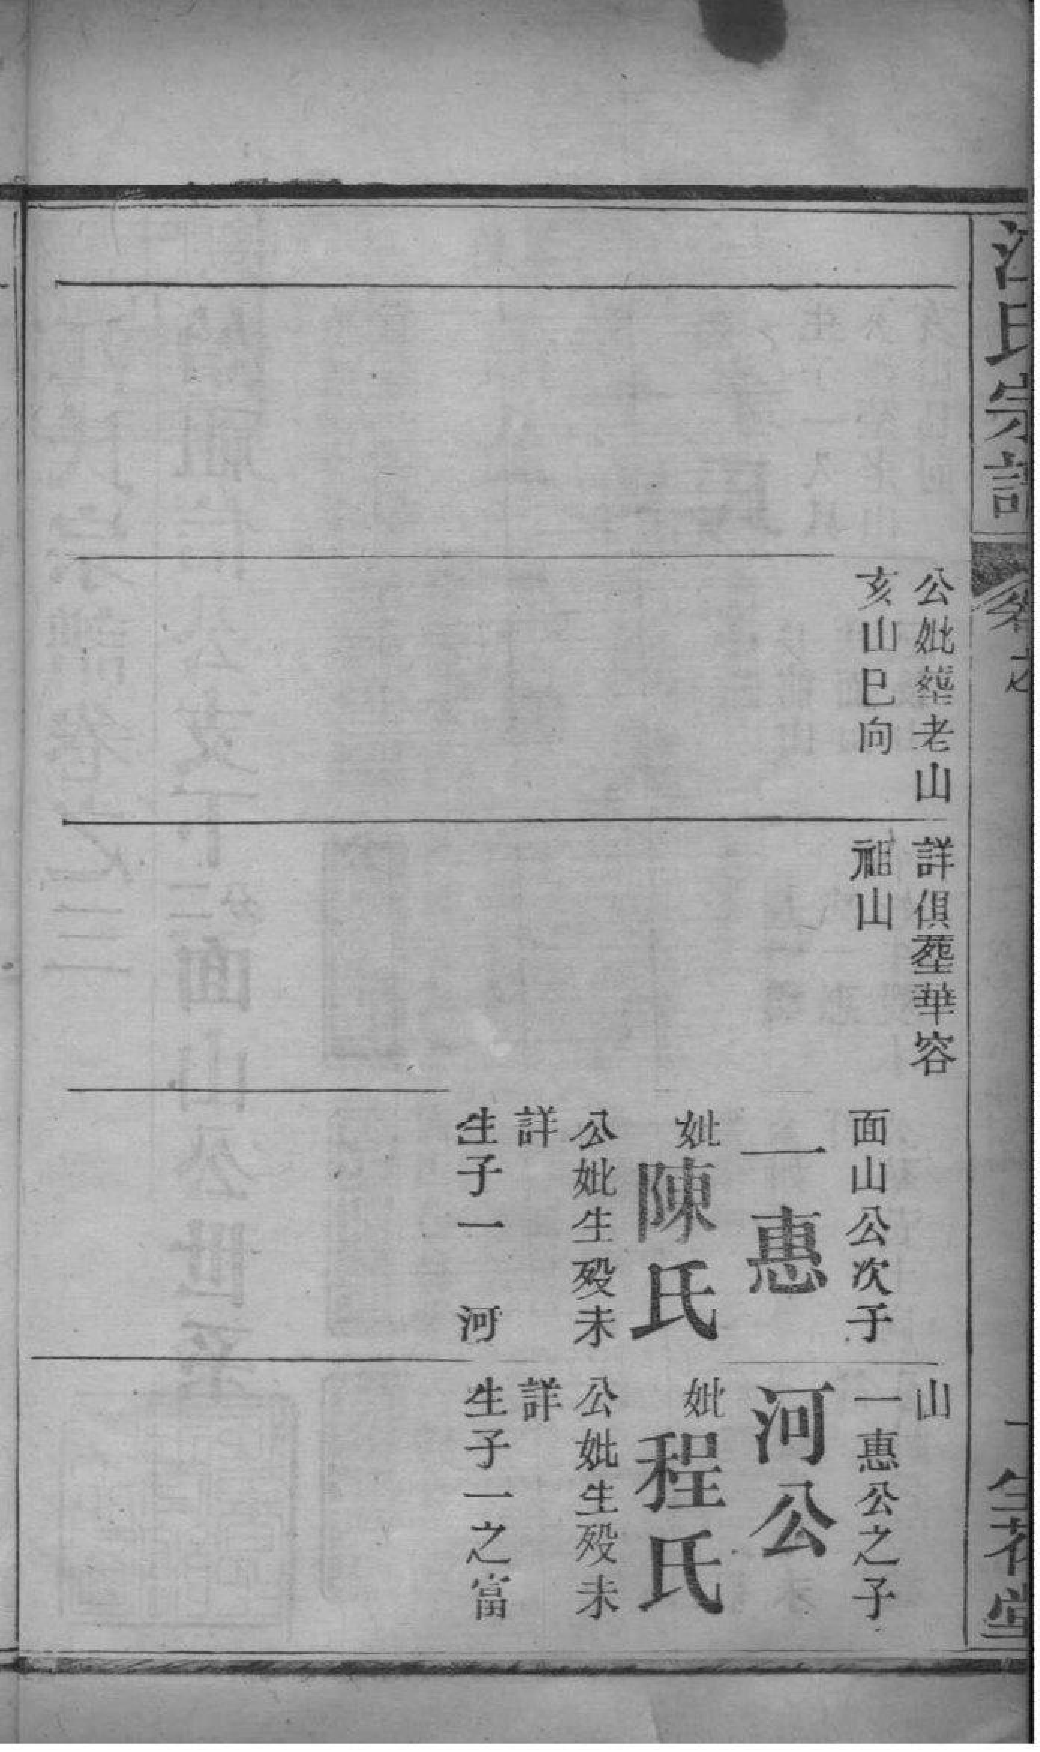 江氏宗譜
卷之
一
生花堂
公妣葬老山
亥山巳向
詳俱葬華容
祖山
面山公次子
一惠
妣陳氏
公妣生殁未
詳
生子一 河
山
一惠公之子
河公
妣程氏
公妣生殁未
詳
生子一之富